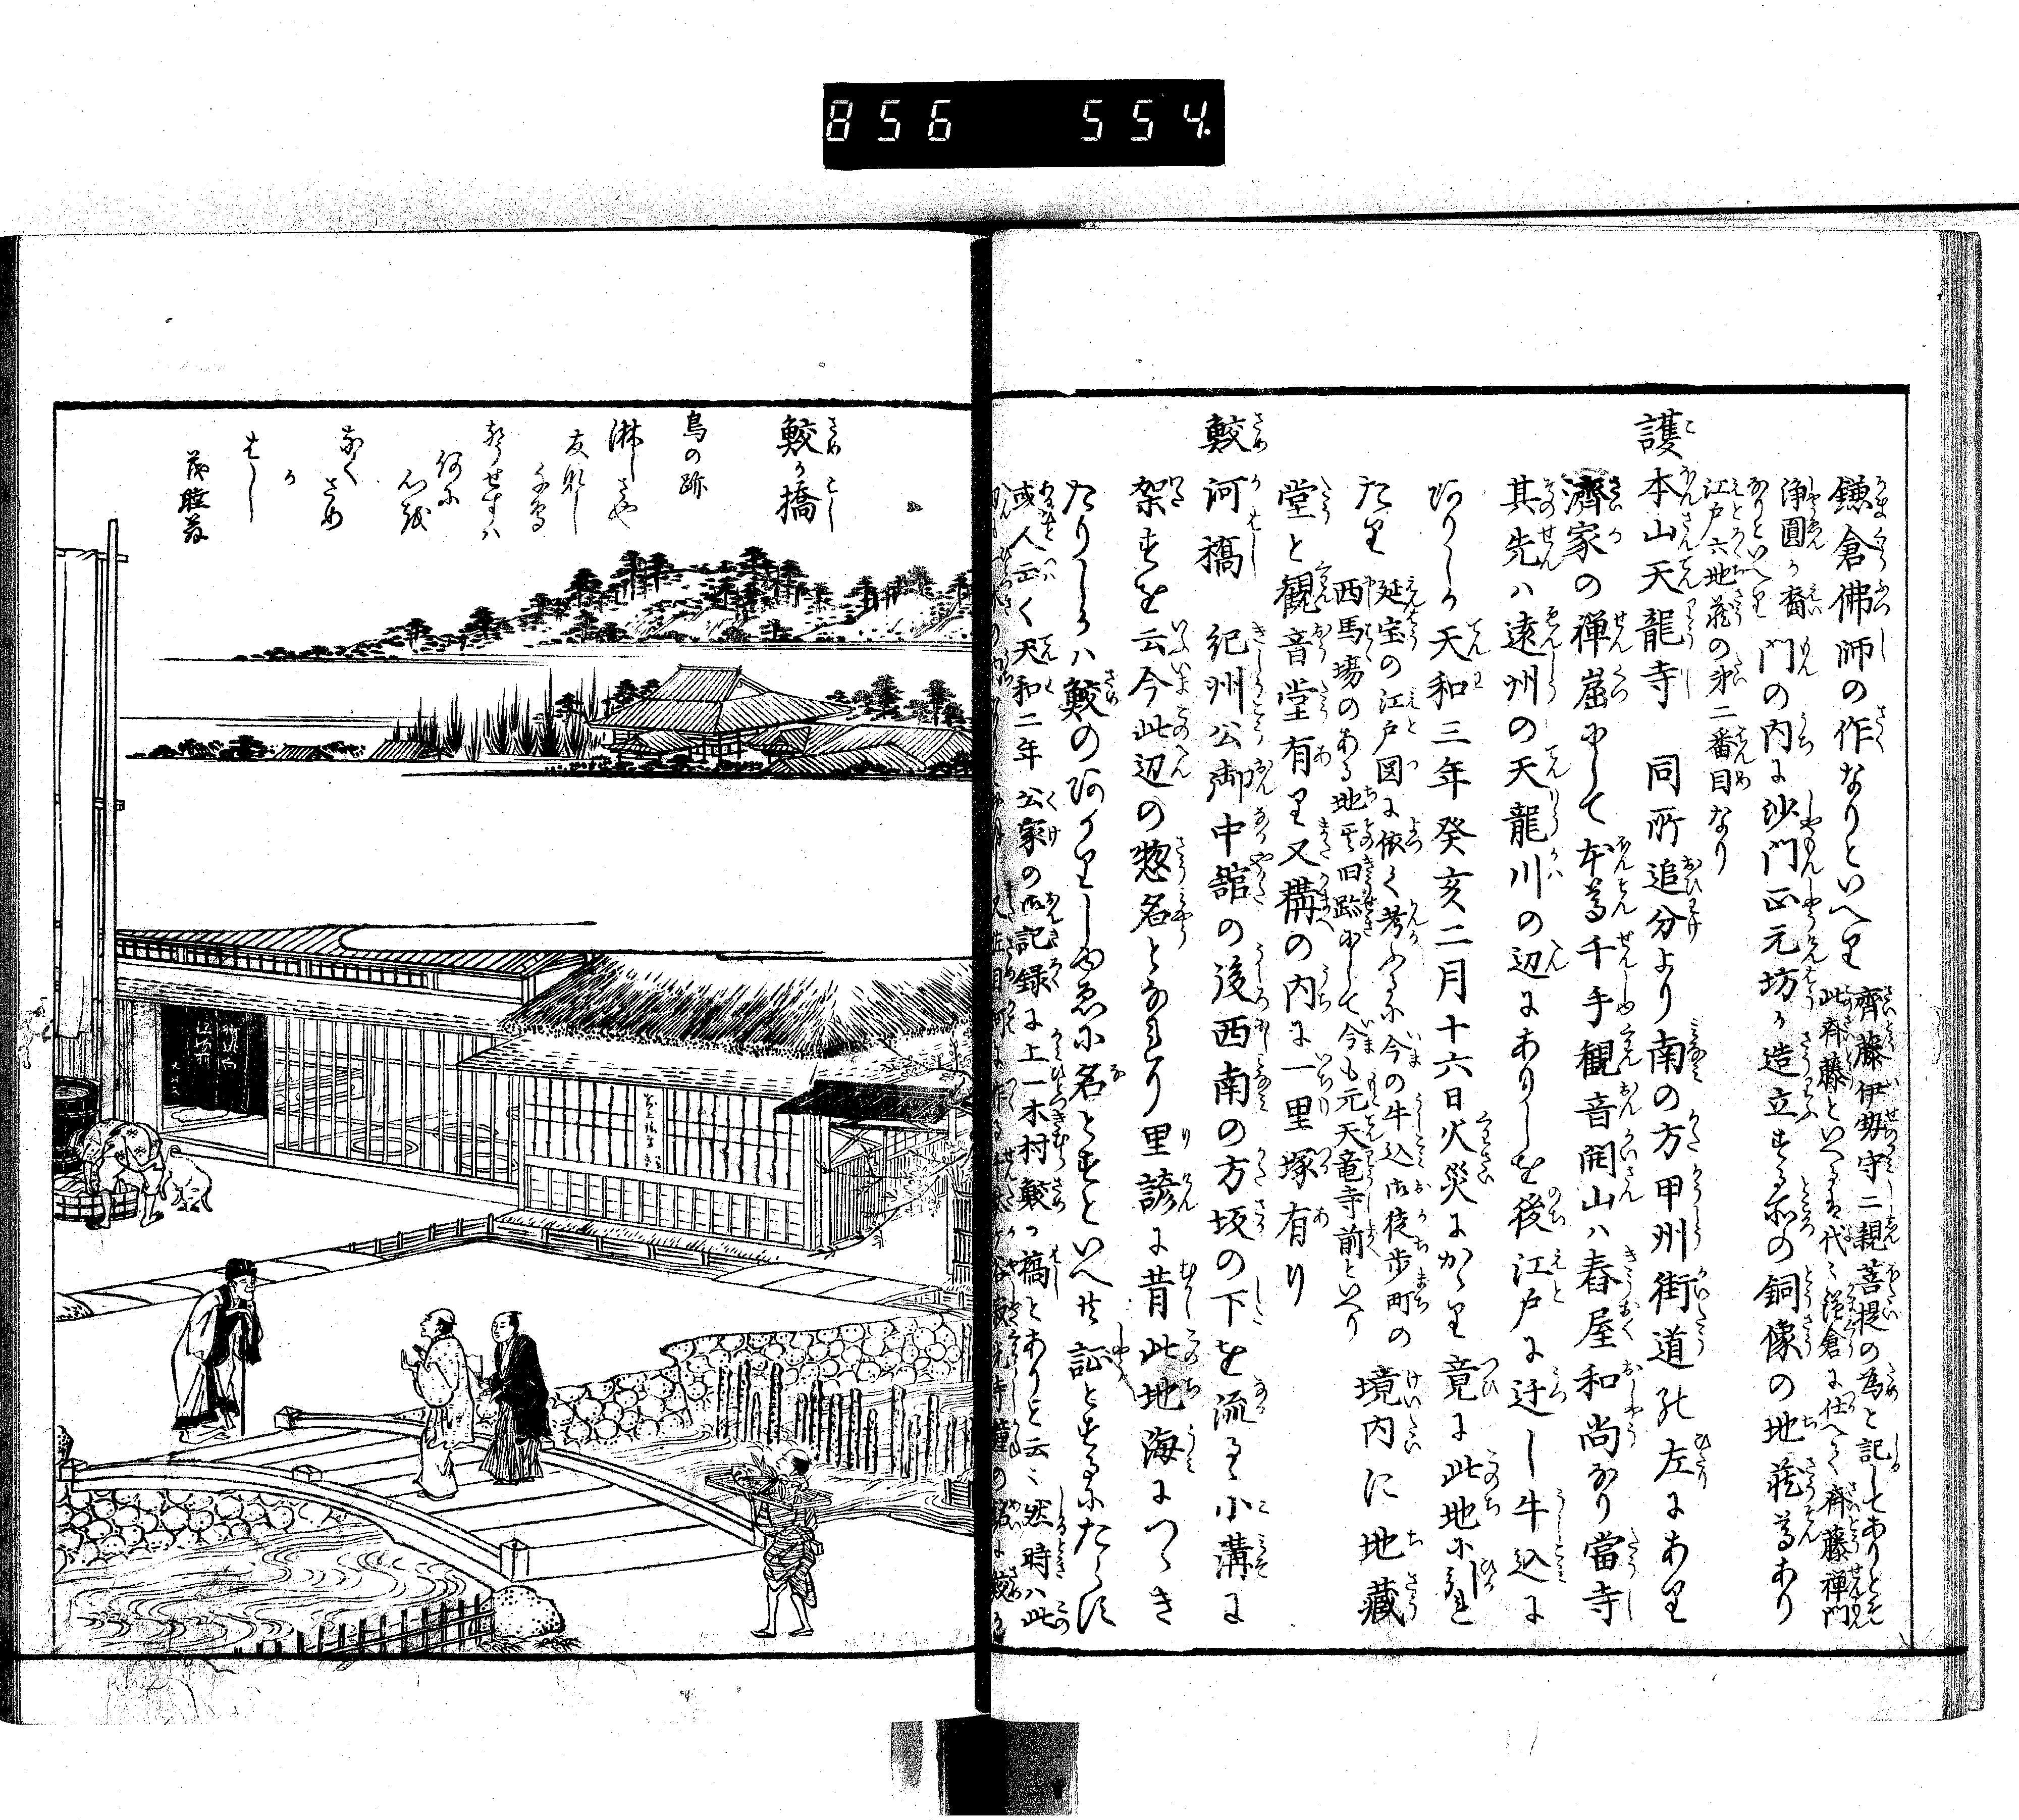 856 554
鎌倉佛師の作なりといへり
齊藤伊勢守二親菩提の為と記してありとそ
此斉藤といへるは代々鎌倉に仕へて斉藤禅門
浄圓か裔
なりといへり
門の内に沙門正元坊か造立する所の銅像の地蔵尊あり
江戸六地蔵の第二番目なり
護本山天龍寺 同所追分より南の方甲州街道の左にあり
濟家の禅崫にして本尊千手観音開山ハ春屋和尚なり當寺
其先ハ遠州の天龍川の辺にありしを後江戸に迂し牛込に
ありしか天和三年癸亥二月十六日火災にかゝり竟に此地に引れ
たり
延宝の江戸図に依て考ふるに今の牛込御徒歩町の
西馬場のある地其旧跡にして今も元天竜寺前といへり
境内に地藏
堂と観音堂有り又構の内に一里塚有り
鮫河橋 紀州公御中舘の後西南の方坂の下を流るゝ小溝に
架すを云今此辺の惣名となれり里諺に昔此地海につゝき
たりしかハ鮫のあかりしゆゑに名とすといへ共証とするにたらす
或人云く天和二年公家の御記録に上一木村鮫か橋とありと云々然時ハ此
鮫か橋
烏の跡
淋しさや
友なし
千鳥
声せすハ
何に
心を
なく
さめ
か
はし
茂睡